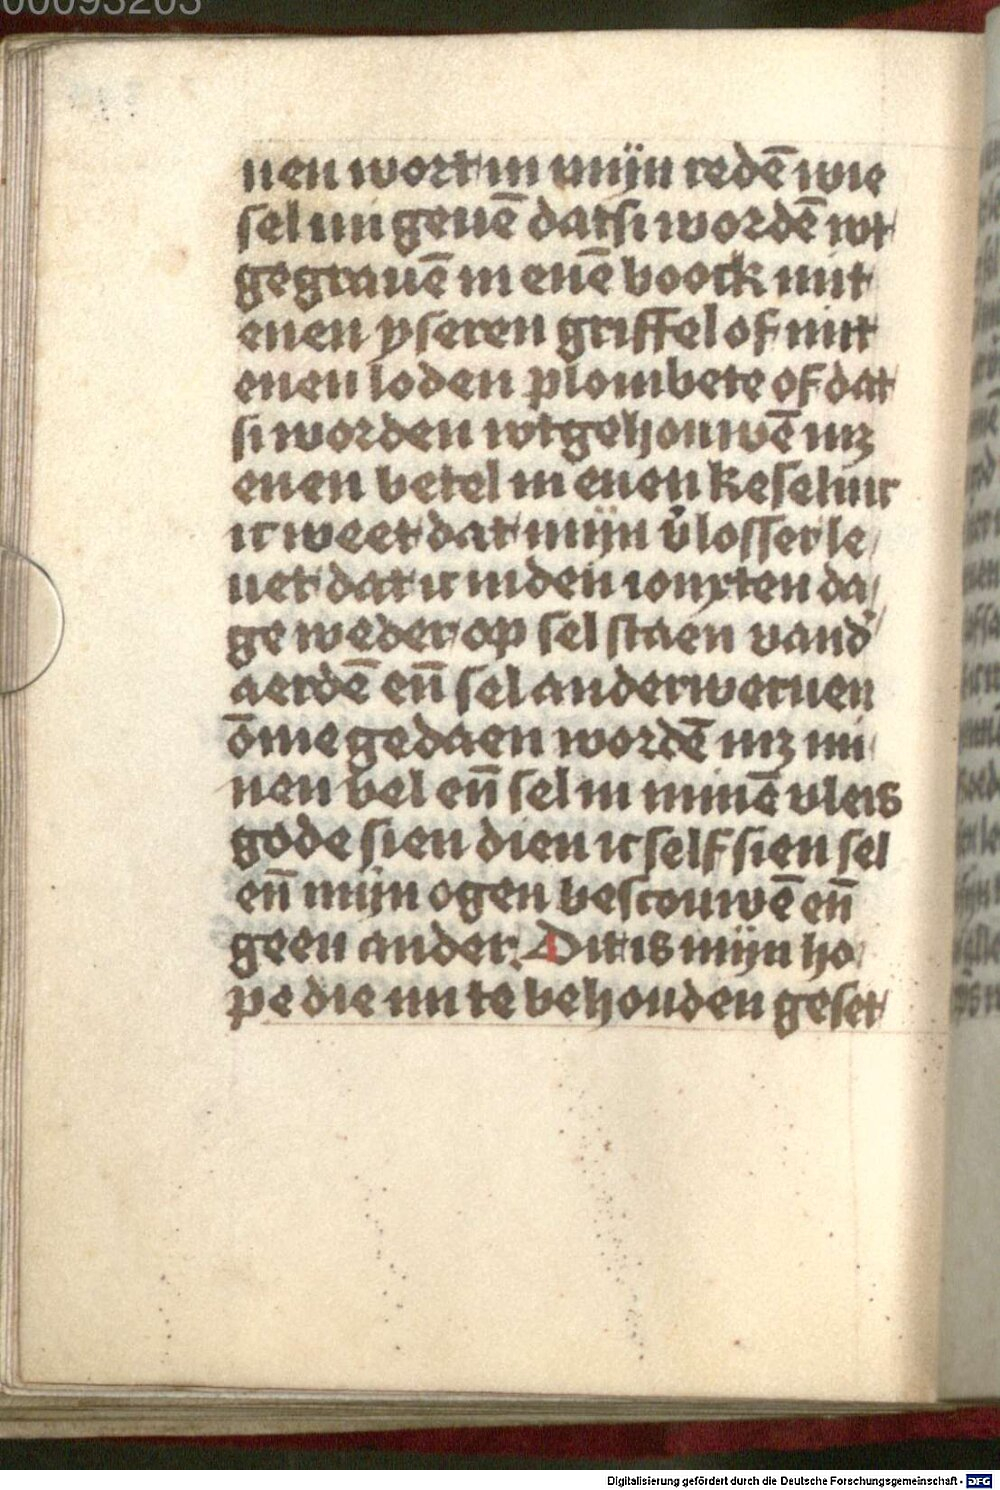 00093203
uen wort in mijn redē wie
sel mi geuē dat si wordē wt
gegrauē in enē boeck mit
enen yseren griffel of mit
enen loden plombete of dat
si worden wtgehouwē mz
enen betel in enen keselinc
ic weet dat mijn v̓losser le
uet dat ic in den ionxten da
ge weder op sel staen vand̓
aerdē eñ sel anderweruen
ōme gedaen wordē mz mi
nen vel eñ sel in minē vleis
gode sien dien ic self sien sel
eñ mijn ogen bescouwē eñ
geen ander. Dit is mijn ho
pe die mi te behouden geset
Digitalisierung gefördert durch die Deutsche Forschungsgemeinschaft - DFG